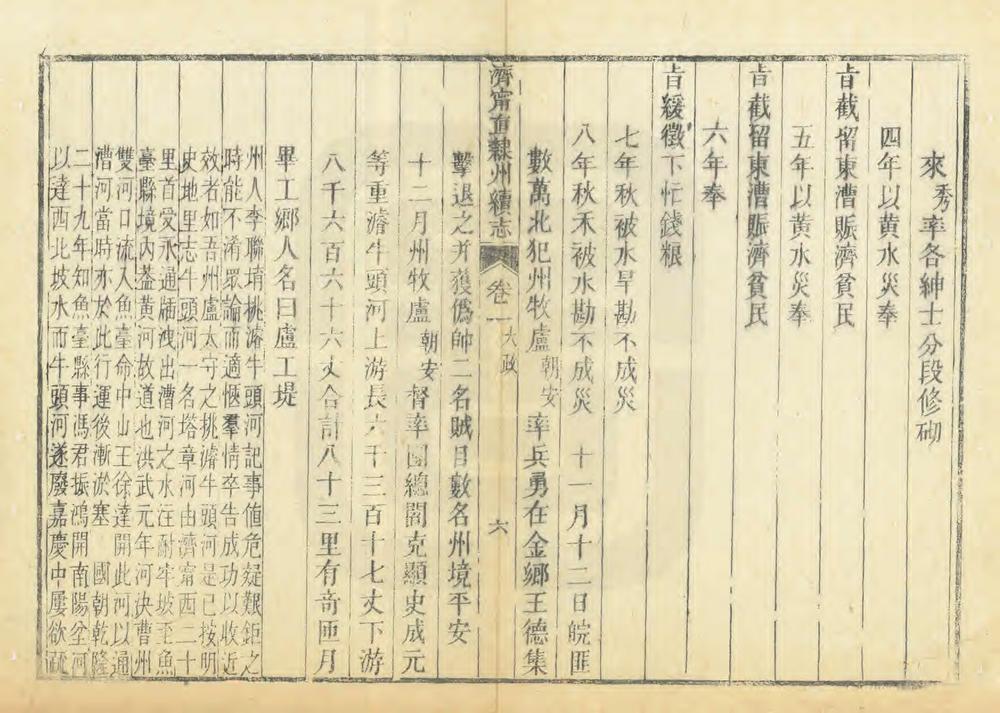 來秀率各紳士分段修砌
四年以黃水災奉
旨截留東漕賑濟貧民
五年以黃水災奉
旨截留東漕賑濟貧民
六年奉
旨緩徵下忙錢粮
七年秋被水旱勘不成災
八年秋禾被水勘不成災 十一月十二日皖匪
數萬北犯州牧盧朝安率兵勇在金鄉王德集
濟甯直隸州續志 卷一 大政 六
擊退之并獲僞帥二名賊目數名州境平安
十二月州牧盧朝安督率團總閻克顯史成元
等重濬牛頭河上游長六千三百十七丈下游
八千六百六十六丈合計八十三里有奇匝月
畢工鄉人名曰盧工堤
州人李聯堉挑濬牛頭河記事值危疑艱鉅之
時能不淆眾論而適愜羣情卒告成功以收近
效者如吾州盧太守之挑濬牛頭河是已按明
史地里志牛頭河一名塔章河由濟甯西二十
里首受永通牐洩出漕河之水注耐牢坡至魚
臺縣境內葢黃河故道也洪武元年河決曹州
雙河口流入魚臺命中山王徐達開此河以通
漕河當時亦於此行運後漸淤塞 國朝乾隆
二十九年知魚臺縣事馮君振鴻開南陽坌河
以達西北坡水而牛頭河遂廢嘉慶中屢欲疏